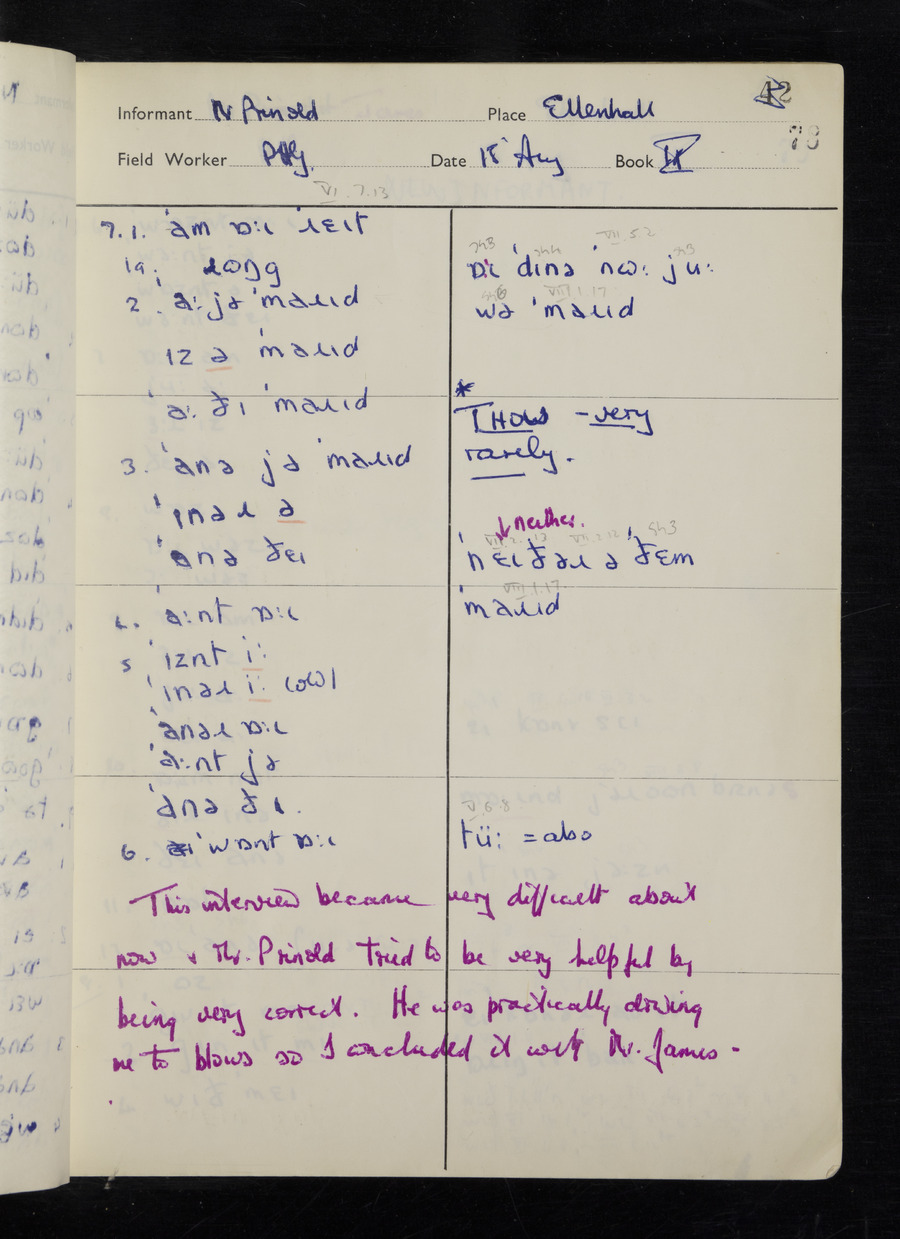 42
Informant Mr Prinold Place Ellenhall
78
Field Worker PHG. Date 15 Aug Book IX
VI.7.13
7.1. ˈam ɒːɩ ˈɹɛɩt
1a. ɹɒŋg
2. ˈaːjə ˈmaɹɩd
ɩz ə ˈmaɹɩd
ˈaː ðɩ ˈmaɹɩd
3. ˈanə jə ˈmaɹɩd
ˈɩnəɹ ə
ˈanə ðɛɩ
4. ˈaːnt ɒːɩ
5 ˈɩznt iː
ˈɩnəɹ iː (ow)
ˈanəɹ ɒːɩ
ˈaːnt jə
ˈanə ðɩ.
6. ˈwɒnt ɒːɩ
VII.5.2
ɒɩ ˈdɩnə ˈnɷː juː
VIII.1.17
wə ˈmaɹɩd
*
THOU - very
rarely.
↓ neither.
ˈnɛɩðəɹ ə ˈðɛm
VIII.1.17
ˈmaɹɩd
V.6.8
tüː = also
This interview became very difficult about
now & Mr. Prinold tried to be very helpful by
being very correct. He was practically driving
me to blows so I concluded it with Mr. James -